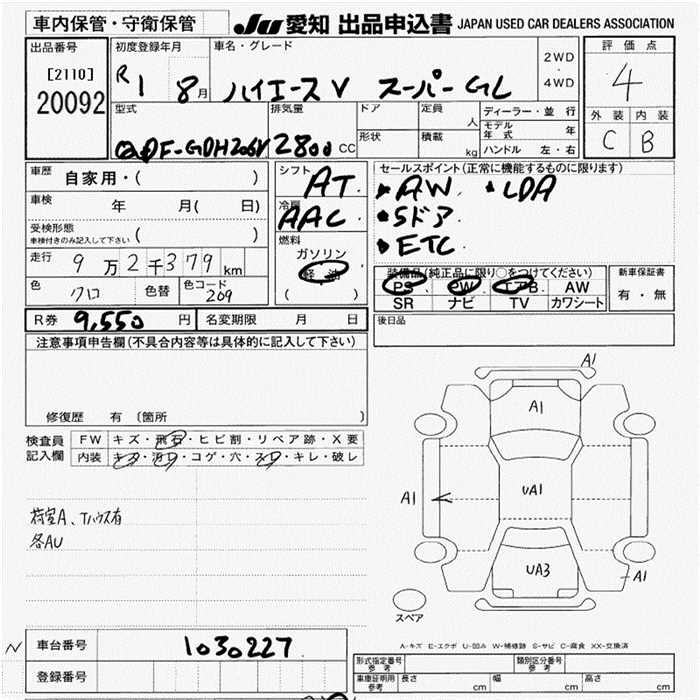 車内保管・守衛保管 JU 愛知 出品申込書 JAPAN USED CAR DEALERS ASSOCIATION
出品番号 初度登録年月 車名・グレード 2WD ・ 4WD 評価点
[2110] R1 8月 ハイエースV スーパーGL 4
20092 型式 排気量 ドア 定員 人 ディーラー・並行 外装 内装
モデル年式 年
QDF-GDH206V 2800 CC 形状 積載 kg ハンドル 左・右 C B
車歴 自家用・( ) シフト AT セールスポイント(正常に機能するものに限ります)
車検 年 月( 日) 冷房 AAC ・AW ・LDA
受検形態 ( ) ・5ドア
車検付きのみ記入して下さい 燃料 ・ETC
走行 9万2千379km ガソリン 装備品(純正品に限り○をつけてください) 新車保証書
色 クロ 色替 色コード 209 軽油 PS PW エアB AW 有・無
( ) SR ナビ TV カワシート
R券 9,550円 名変期限 月 日 後日品
注意事項申告欄(不具合内容等は具体的に記入して下さい)
修復歴 有 〔箇所 〕
検査員記入欄 FW キズ・飛石・ヒビ割・リペア跡・X要
内装 キズ・汚レ・コゲ・穴・スレ・キレ・破レ
荷室A、Tハウス有
各AU
A1
A1
A1 UA1
UA3 A1
スペア
A-キズ E-エクボ U-凹み W-補修跡 S-サビ C-腐食 XX-交換済
車台番号 1030227
登録番号
形式指定番号 参考 類別区分番号 参考
車庫証明用 参考 長さ cm 幅 cm 高さ cm